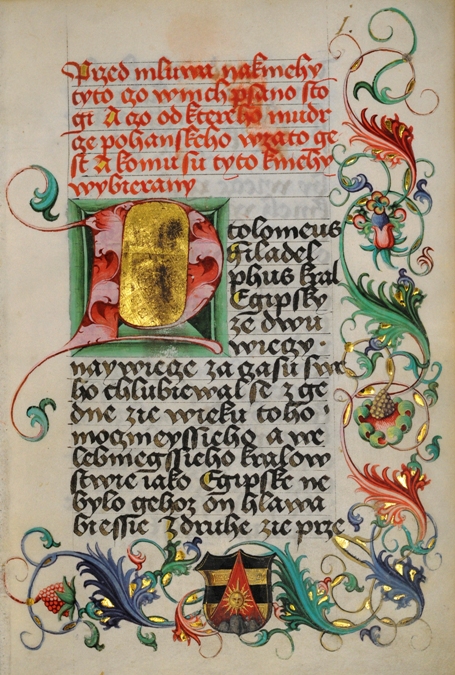 Przed mluwa nakniehy
tyto go wnich psano sto
gi A go od ktereho mudr
ge pohanskeho wzato ge
st a komu su tyto kniehy
wybierany
Ptolomeus
Filadel
phus kral
Egipsky
ze dwu
wiegy
naywiege za gasu swa
ho chlubiewal se z ge
dne zie wieku toho
mogmeyssieho a we
lebnegssieho kralow
stwie iako Egipske ne
bylo gehoz on hlawa
biessie Z druhe zie prze